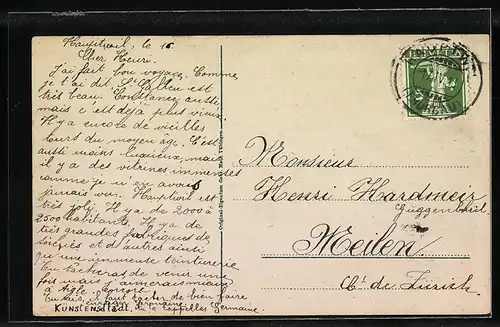 Hauptwil, le 16
Cher Henri.
J'ai fait bon voyage. Comme
je t'ai dit, St Gallen est
très beau. Constance aussi
mais c'est déjà plus vieux.
Il y a encore de vieilles
tours du moyen age. C'est
aussi moins luxieux, mais
il y a des vitrines immenses
comme je n'en avais
jamais vu. Hauptwil est
très joli. Il y a de 2000 à
2500 habitants. Il y a de
très grandes fabriques de
et de autres ainsi
qu'une immense teinturerie
tacheras de venir une
fois mais j'aimerais mieux
à
faut tacher de bien faire
Germaine
KUNSLENSTADT.
Monsieur
Henri Hardmeier
Guggenbühl
Meilen.
Ct. de Zürich